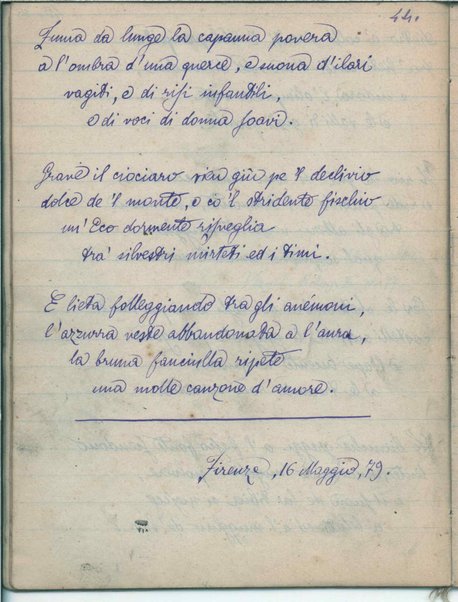 44.
Fuma da lunge la capanna povera
a l'ombra d'una querce, e suona d'ilari
vagiti, e di risi infantili,
e di voci di donna soavi.
Grave il ciociaro vien giù pe 'l declivio
dolce de 'l monte, e co 'l stridente fischio
un' Eco dormente risveglia
tra' silvestri mirteti ed i timi.
E lieta folleggiando tra gli anémoni,
l'azzurra veste abbandonata a l'aura,
la bruna fanciulla ripete
una molle canzone d'amore.
Firenze, 16 Maggio, 79.